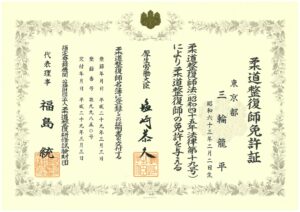 柔道整復師免許証
東京都
三輪龍平
昭和六十三年二月二日生
柔道整復師法(昭和四十五年法律第十九号)
により柔道整復師の免許を与える
厚生労働大臣
塩崎恭久
柔道整復師名簿に登録し この証明書を交付する
登録年月日 平成二十九年三月三日
指定登録機関 公益財団法人柔道整復研修試験財団
代表理事
福島統